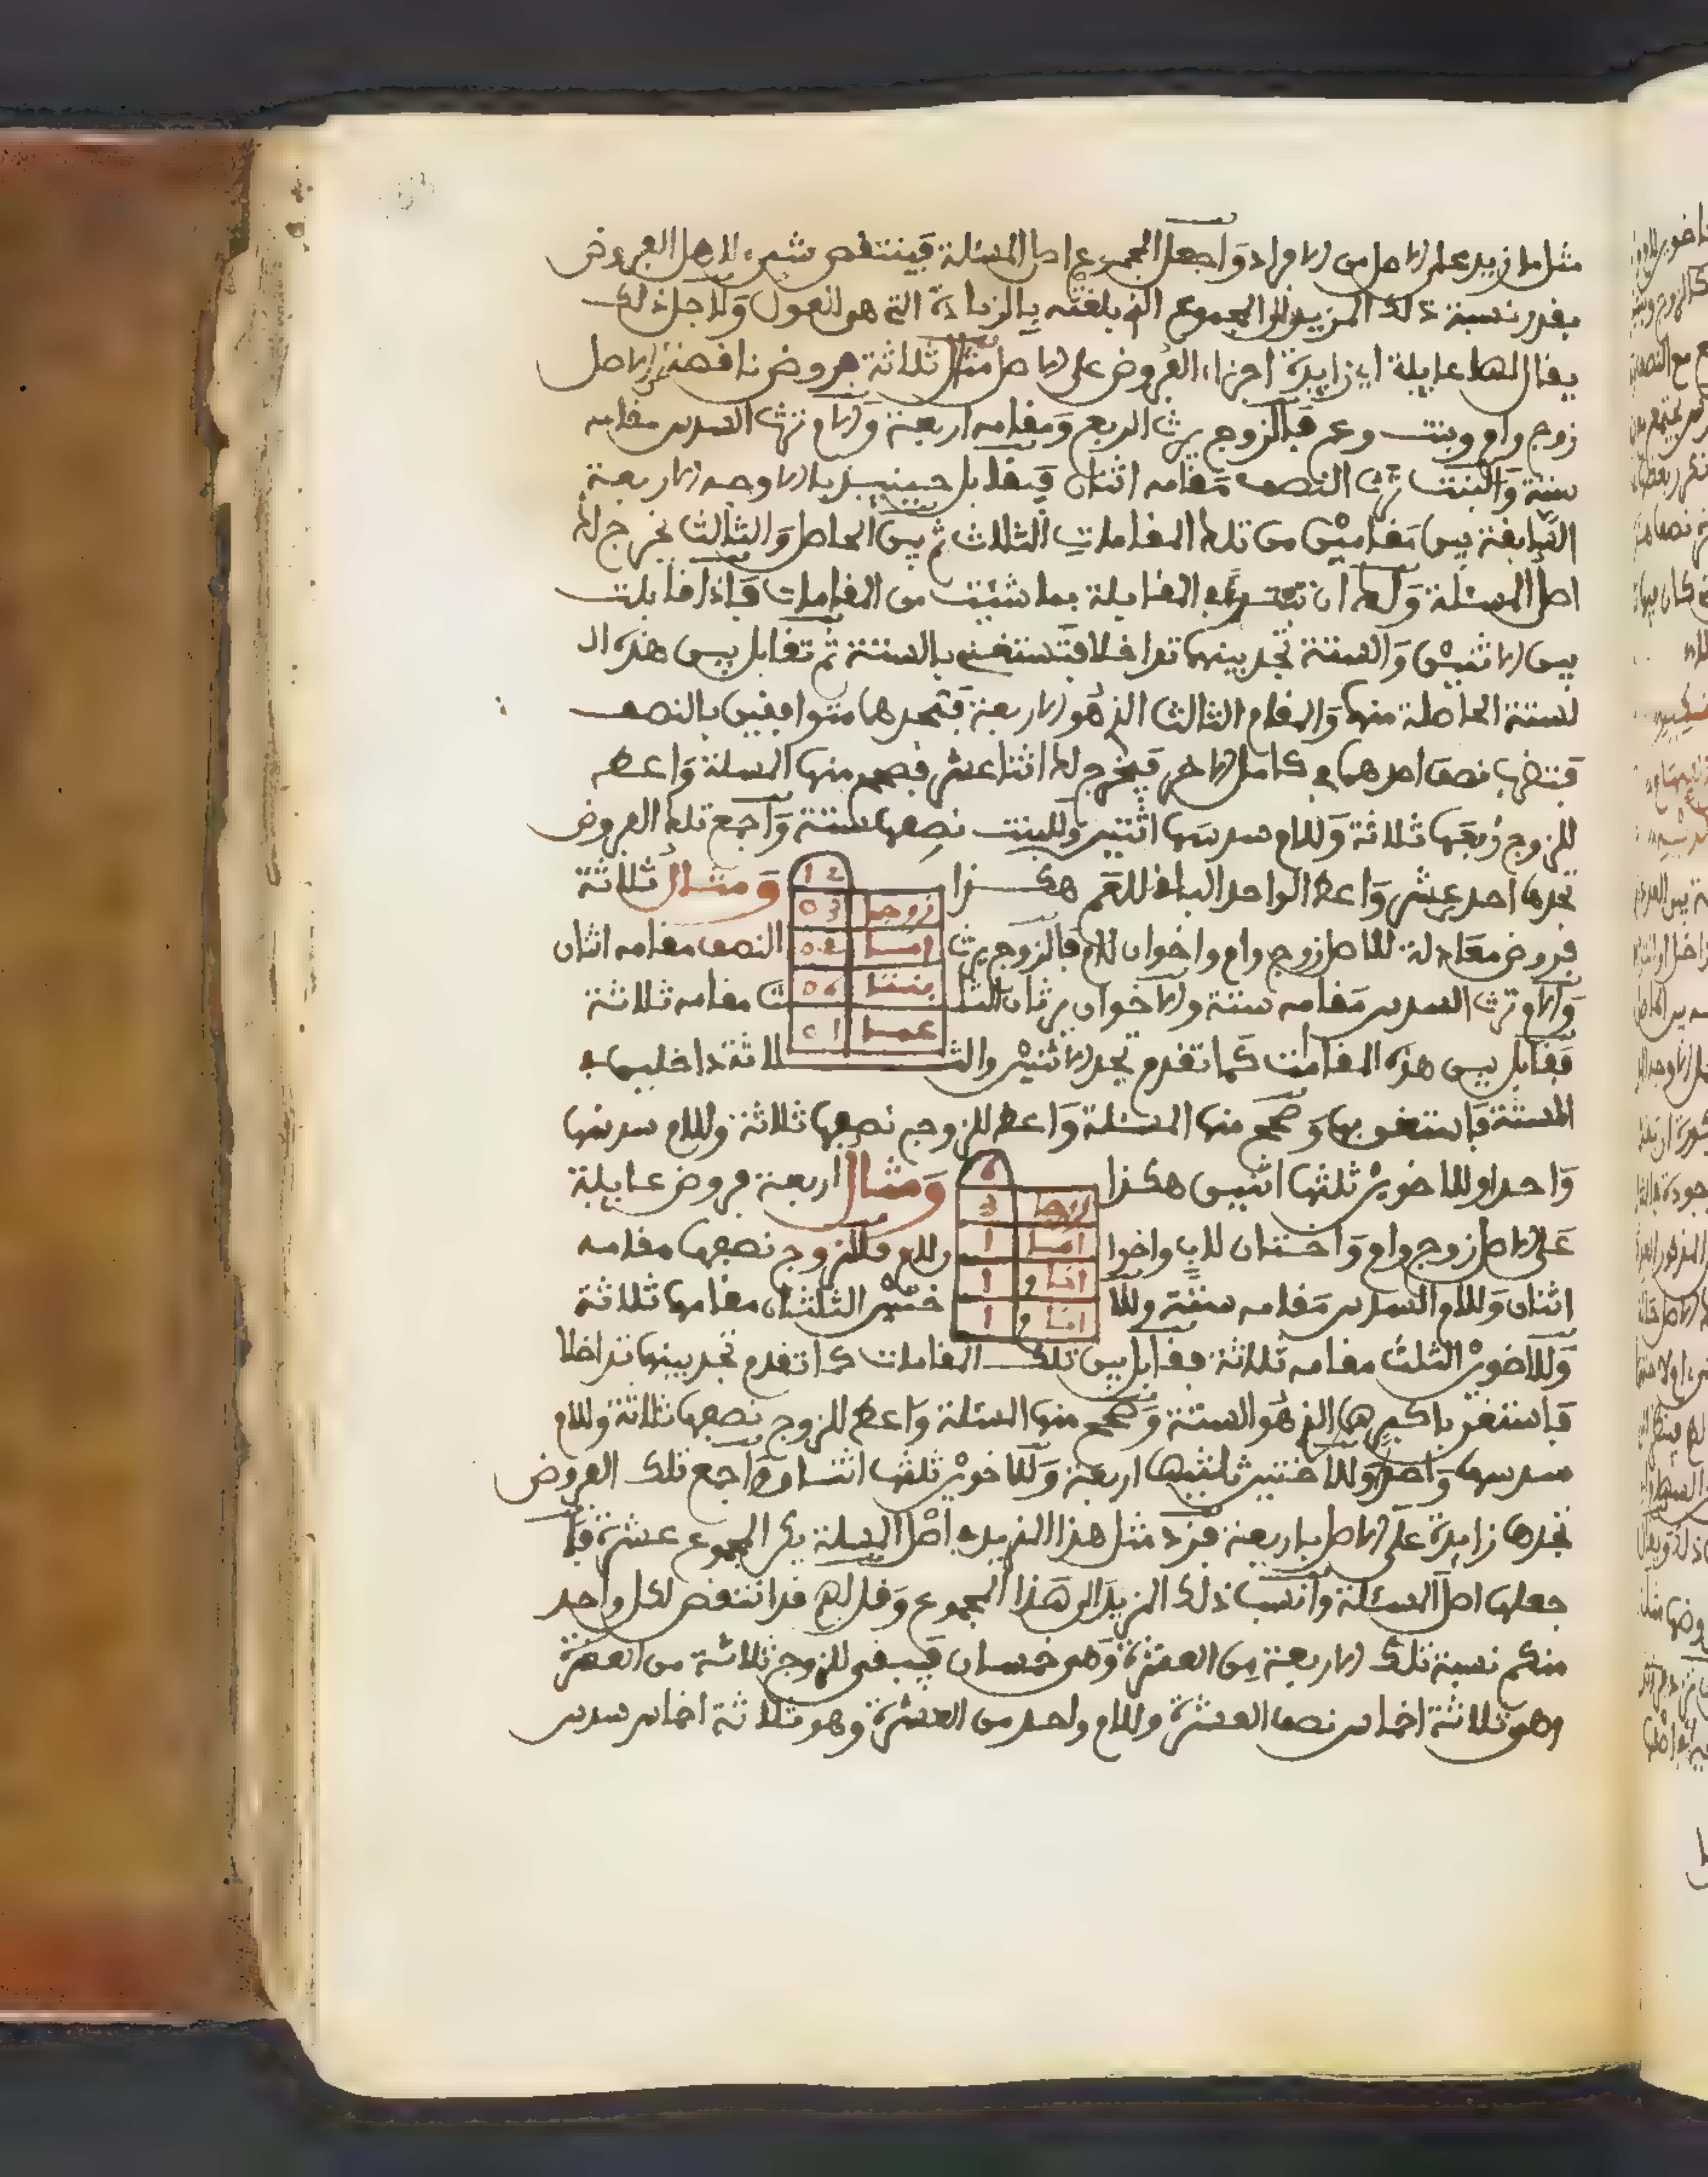 مثل ما زيد على الاصل من الافراد وَاجعل المجموع اصل المسئلة فَينتقص شيء لاهل الفروض
بقدر نسبة ذلك المزيد الى المجموع الذي بلغته بالزيادة التي هو العول وَلاجل ذلك
يقال لها عايلة اي زايدة اجزاء الفروض على الاصل مثال ثلاثة فروض ناقصة عن الاصل
زوج وام وبنت وعم فَالزوج يرث الربع وَمقامه اربعة وَالام ترث السدس مقامه
ستة وَالبنت ترث النصف مَقامه اثنان فَيقابل حينيذ بالاوجه الاربعة
السَّابقة بين مَقامين من تلك المقامات الثلاث ثم بين الحاصل وَالثالث يخرج لك
اصل المسئلة وَلك ان تبتدئ المقابلة بما شئت من المقامات فَاذا قابلت
بين الاثنين وَالستة تجد بينهما تداخلا فتستغني بالستة ثم تقابل بين هذه ال
لستة الحاصلة منهما وَالمقام الثالث الذي هُو الاربعة فتجدهما متوافقين بالنصف
فتضرب نصف احدهما في كامل الاخر فَيخرج لك اثنا عشر فصحح منها المسلة وَاعط
للزوج رُبعَها ثلاثة وَللام سدسَها اثنين وَللبنت نصِفها ستة وَاجمع تلك الفروض
تجدها احد عِشر وَاعط الواحد الباقي للعَم هكذا وَمثال ثلاثة
12
زوجـ 03
امـ 02
بنتـ 06
عمـ 01
فروض معَادلة للاصل زوج وام واخوان للام فَالزوج يرث النصف مقامه اثنان
وَالام ترث السدس مَقامه ستة والاخوان يرثان الثلث مقامه ثلاثة
فَقابل بين هذه المقامات كما تقدم تجد الاثنين والثلاثة داخلين في
الستة فَاستغن بها وَصحح منها المسئلة وَاعط للزوج نصِفها ثلاثة وللام سدسها
وَاحدا وللاخوين ثلثها اثنين هكذا وَمثال اربعة فروض عايلة
6
زوجـ 3
امـ 1
اخـ و 1
اخـ و 1
عَلى الاصل زوج وام وَاختان للاب واخوا وللام فللزوج نصفها مقامه
اثنان وَللام السدس مَقامه ستَّة وللاختين الثلثان مقامها ثلاثة
وَللاخوين الثلث مقامه ثلاثة فقابل بين تلك المقامات كما تقدم تجد بينها تداخلا
فَاستغن باكبرها الذي هُو الستة وَصحح منها المسئلة وَاعط للزوج نصفها ثلاثة وللام
سدسها وَاحد وَللاختين ثلثيها اربعة وَللاخوين ثلثها اثنـ ـا وَاجمع تلك الفروض
تجدها زايدة على الاصل باربعة فزد مثل هذا المزيد في اصْل المسلة يكن المجموع عشرة فَا
جعلها اصل المسئلة وَانسب ذلك المزيدَ الى هَذا المجموع وَقل لهم قد انتقص لكل واحد
منكم نسبة تلك الاربعة مِن العشرة وَهو خمسان فَيبقى للزوج ثلاثة من العشرة
وهو ثلاثة اخماس نصف العشرة وللام واحد من العشرة وهو ثلاثة اخماس سدس